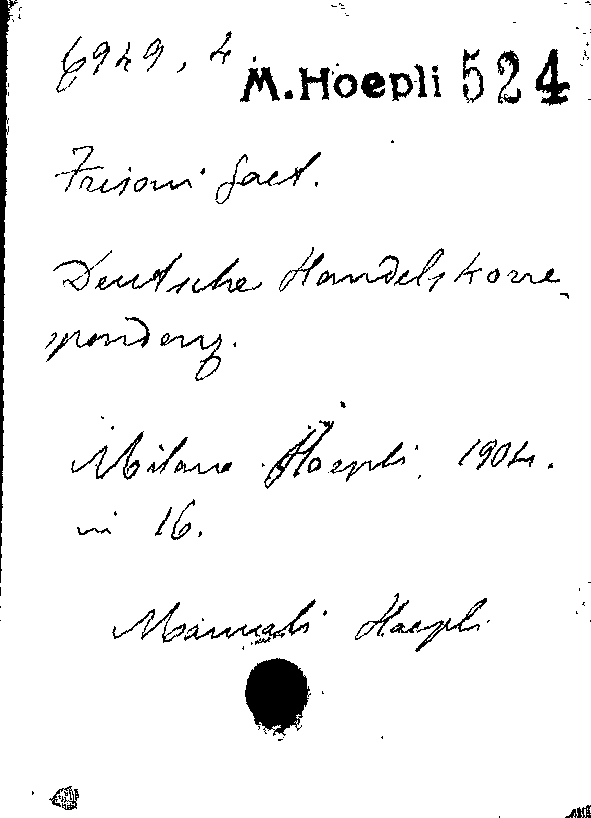 6949, 4 M. Hoepli 524
Frisoni Gaet.
Deutsche Handelskorre-
spondenz.
Milano Hoepli, 1904.
in 16.
Manuali Hoepli